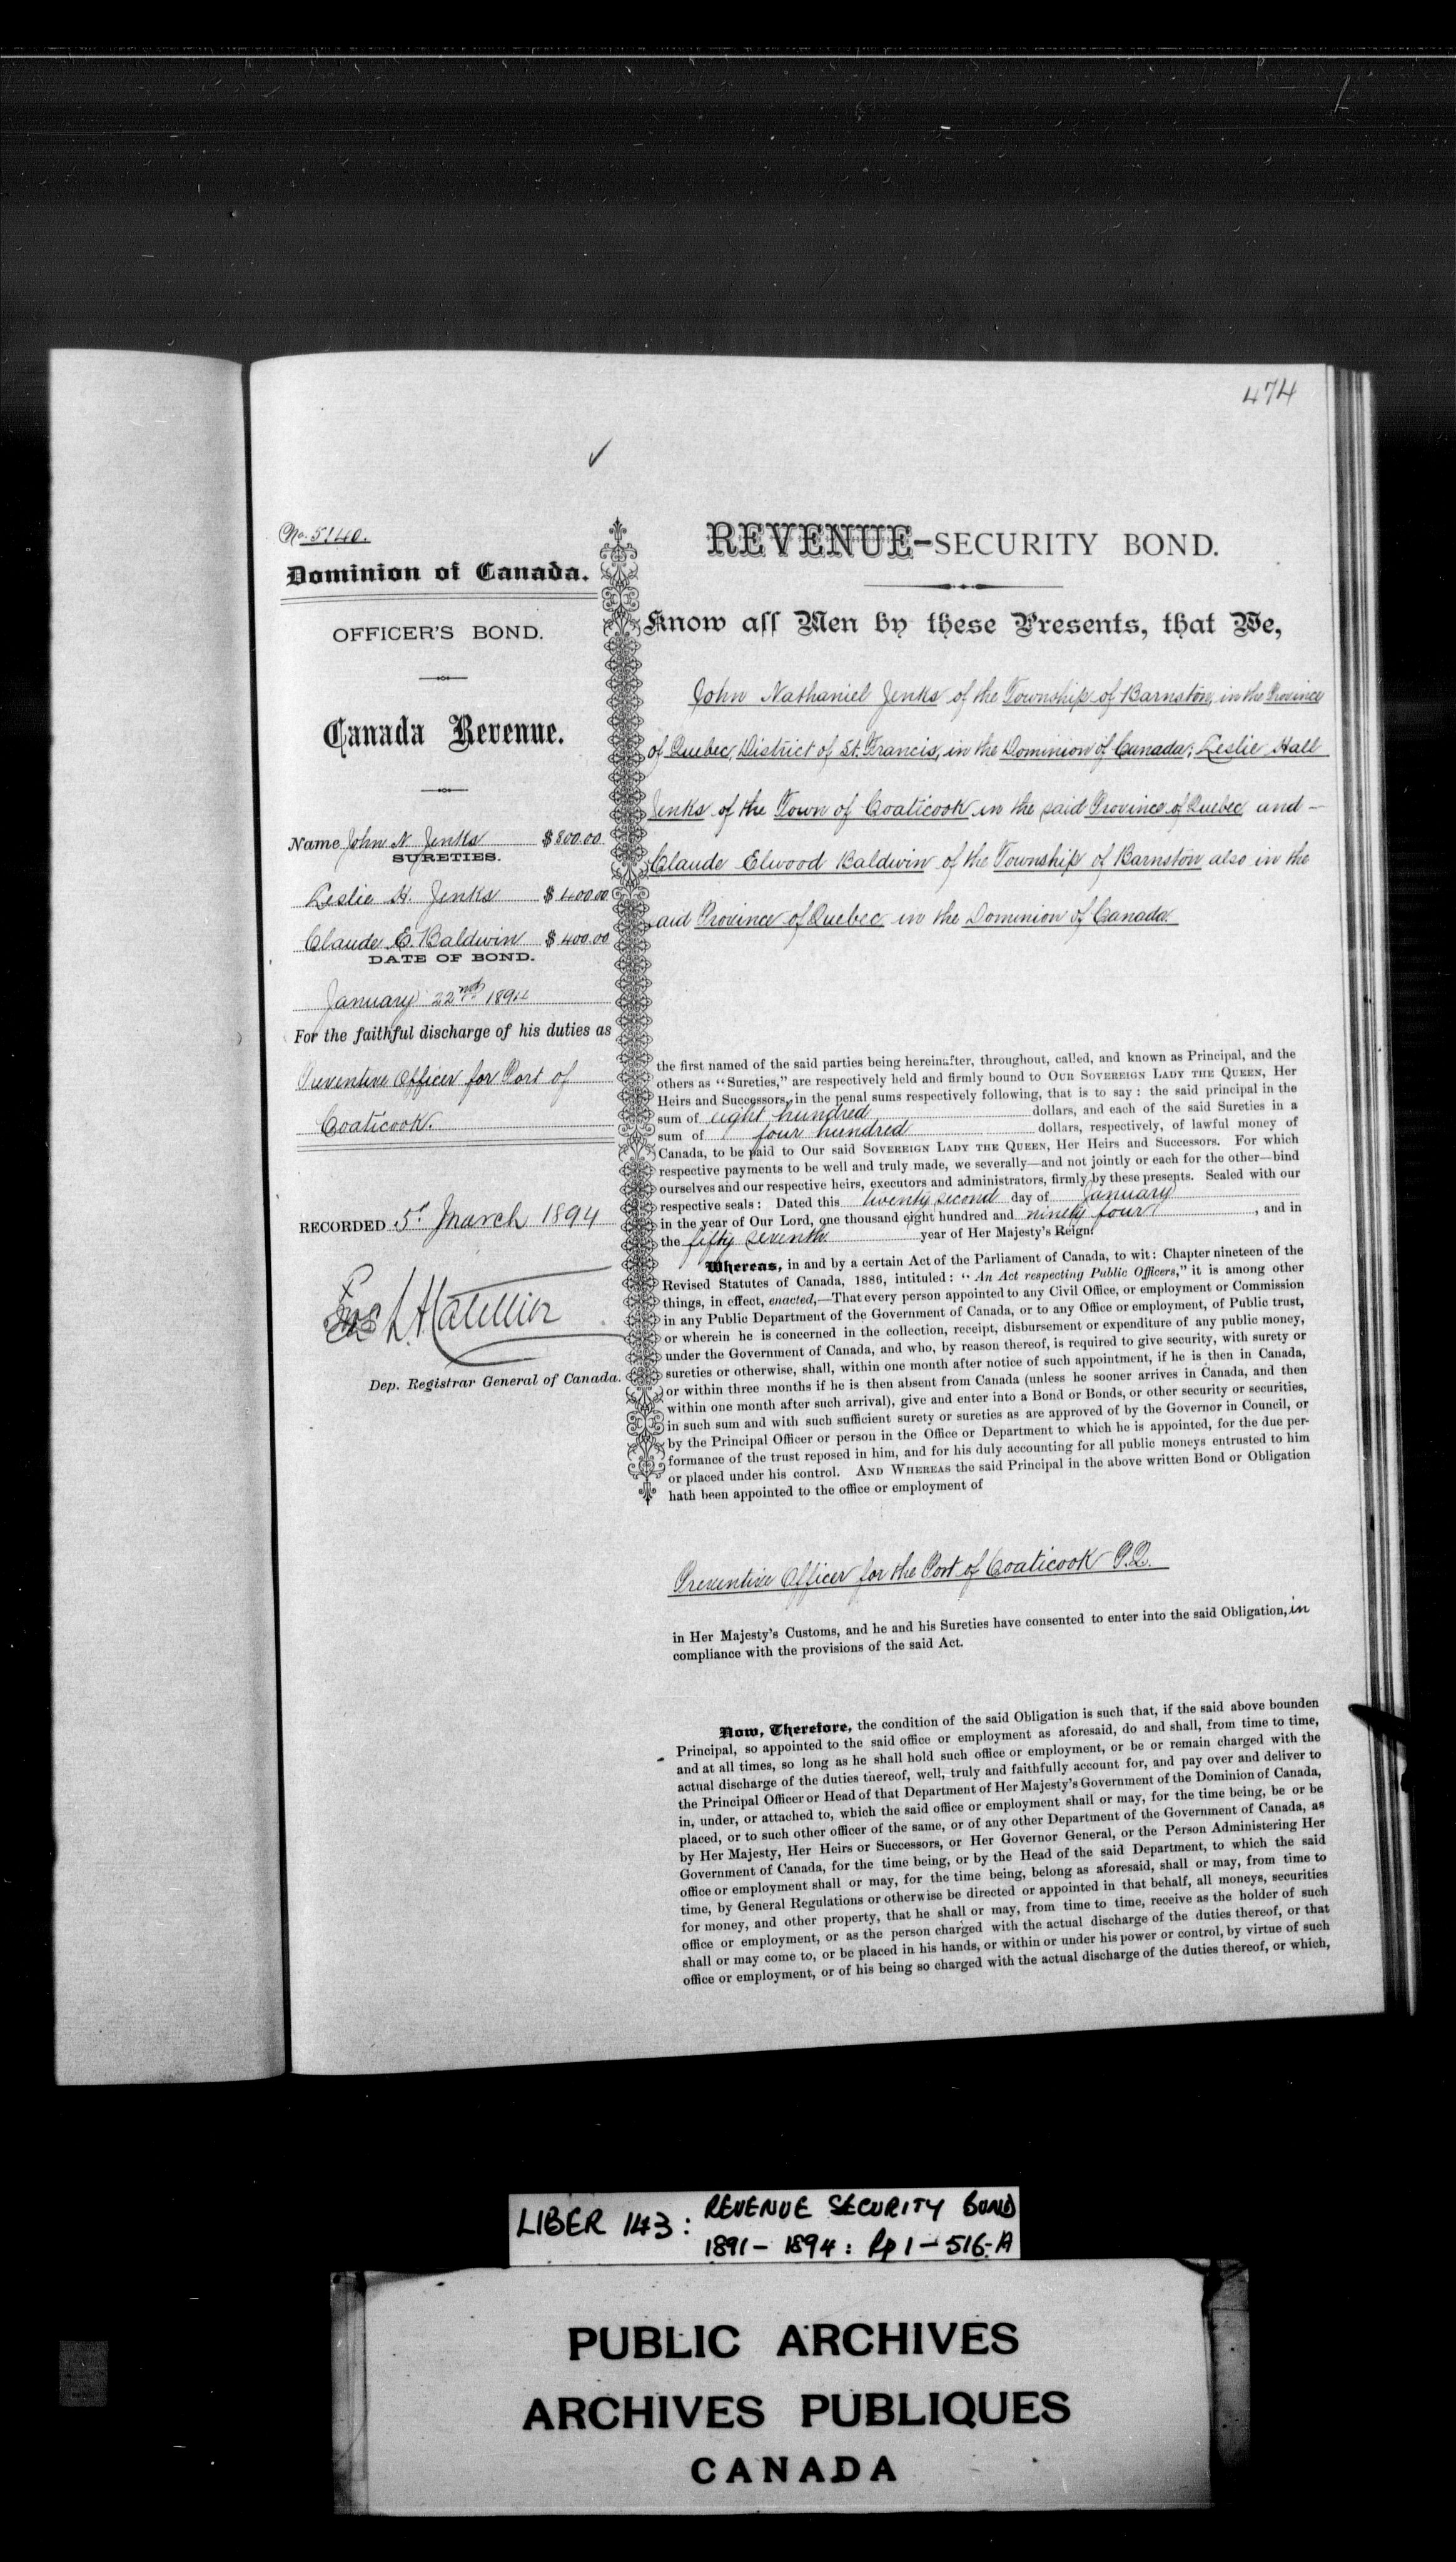 474
No. 5140.
Dominion of Canada.
OFFICER'S BOND.
Canada Revenue.
Name John N. Jenks $800.00
SURETIES.
Leslie H. Jenks $400.00
Claude E. Baldwin $400.00
DATE OF BOND.
January 22nd 1894
For the faithful discharge of his duties as
Preventive Officer for Port of
Coaticook.
RECORDED 5th March 1894
Dep. Registrar General of Canada.
REVENUE-SECURITY BOND.
Know all Men by these Presents, that We,
John Nathaniel Jenks of the Township of Barnston, in the Province
of Quebec, District of St. Francis, in the Dominion of Canada; Leslie Hall
Jenks of the Town of Coaticook in the said Province of Quebec and –
Claude Elwood Baldwin of the Township of Barnston also in the
said Province of Quebec in the Dominion of Canada
the first named of the said parties being hereinafter, throughout, called, and known as Principal, and the
others as "Sureties," are respectively held and firmly bound to OUR SOVEREIGN LADY THE QUEEN, Her
Heirs and Successors, in the penal sums respectively following, that is to say: the said principal in the
sum of eight hundred dollars, and each of the said Sureties in a
sum of four hundred dollars, respectively, of lawful money of
Canada, to be paid to Our said SOVEREIGN LADY THE QUEEN, Her Heirs and Successors. For which
respective payments to be well and truly made, we severally—and not jointly or each for the other—bind
ourselves and our respective heirs, executors and administrators, firmly by these presents. Sealed with our
respective seals: Dated this twenty second day of January
in the year of Our Lord, one thousand eight hundred and ninety four, and in
the fifty seventh year of Her Majesty's Reign.
Whereas, in and by a certain Act of the Parliament of Canada, to wit: Chapter nineteen of the
Revised Statutes of Canada, 1886, intituled: "An Act respecting Public Officers," it is among other
things, in effect, enacted,—That every person appointed to any Civil Office, or employment or Commission
in any Public Department of the Government of Canada, or to any Office or employment, of Public trust,
or wherein he is concerned in the collection, receipt, disbursement or expenditure of any public money,
under the Government of Canada, and who, by reason thereof, is required to give security, with surety or
sureties or otherwise, shall, within one month after notice of such appointment, if he is then in Canada,
or within three months if he is then absent from Canada (unless he sooner arrives in Canada, and then
within one month after such arrival), give and enter into a Bond or Bonds, or other security or securities,
in such sum and with such sufficient surety or sureties as are approved of by the Governor in Council, or
by the Principal Officer or person in the Office or Department to which he is appointed, for the due per-
formance of the trust reposed in him, and for his duly accounting for all public moneys entrusted to him
or placed under his control. AND WHEREAS the said Principal in the above written Bond or Obligation
hath been appointed to the office or employment of
Preventive Officer for the Port of Coaticook P.Q.
in Her Majesty's Customs, and he and his Sureties have consented to enter into the said Obligation, in
compliance with the provisions of the said Act.
Now, Therefore, the condition of the said Obligation is such that, if the said above bounden
Principal, so appointed to the said office or employment as aforesaid, do and shall, from time to time,
and at all times, so long as he shall hold such office or employment, or be or remain charged with the
actual discharge of the duties thereof, well, truly and faithfully account for, and pay over and deliver to
the Principal Officer or Head of that Department of Her Majesty's Government of the Dominion of Canada,
in, under, or attached to, which the said office or employment shall or may, for the time being, be or be
placed, or to such other officer of the same, or of any other Department of the Government of Canada, as
by Her Majesty, Her Heirs or Successors, or Her Governor General, or the Person Administering Her
Government of Canada, for the time being, or by the Head of the said Department, to which the said
office or employment shall or may, for the time being, belong as aforesaid, shall or may, from time to
time, by General Regulations or otherwise be directed or appointed in that behalf, all moneys, securities
for money, and other property, that he shall or may, from time to time, receive as the holder of such
office or employment, or as the person charged with the actual discharge of the duties thereof, or that
shall or may come to, or be placed in his hands, or within or under his power or control, by virtue of such
office or employment, or of his being so charged with the actual discharge of the duties thereof, or which,
LIBER 143: REVENUE SECURITY BOND
1891 – 1894: Pp 1 – 516-A
PUBLIC ARCHIVES
ARCHIVES PUBLIQUES
CANADA